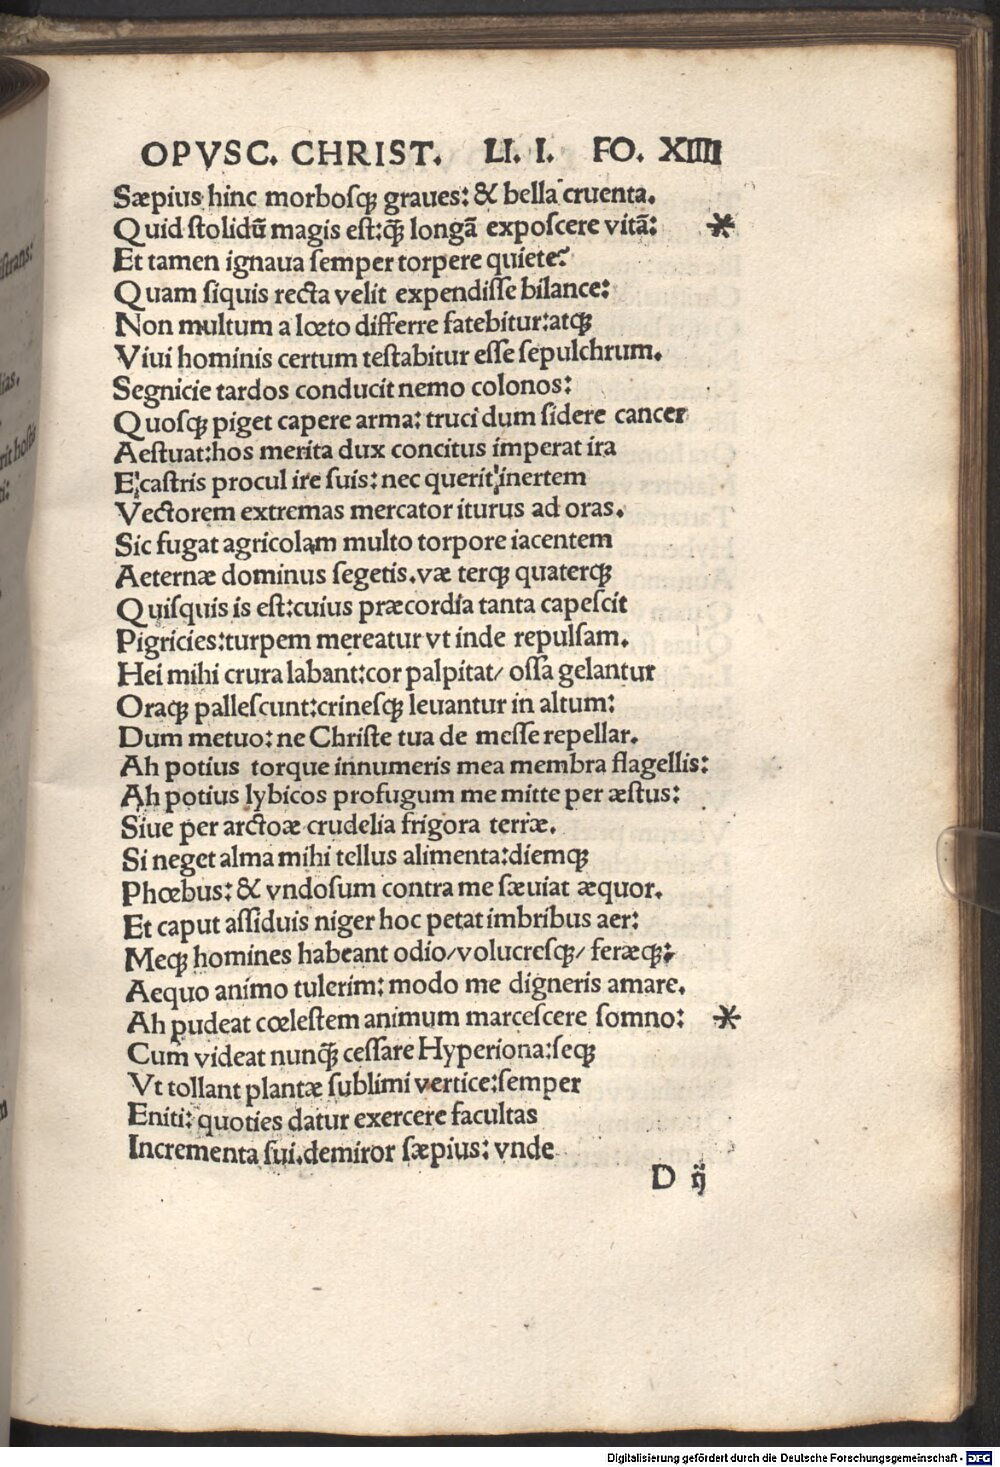 OPVSC. CHRIST. LI. I. FO. XIIII
Sæpius hinc morbosq; graues: & bella cruenta.
Quid stolidū magis est: q̃ longã exposcere vitã: *
Et tamen ignaua semper torpere quiete?
Quam siquis recta velit expendisse bilance:
Non multum a lœto differre fatebitur: atq;
Viui hominis certum testabitur esse sepulchrum.
Segnicie tardos conducit nemo colonos:
Quosq; piget capere arma: truci dum sidere cancer
Aestuat: hos merita dux concitus imperat ira
E¦castris procul ire suis: nec querit¦inertem
Vectorem extremas mercator iturus ad oras.
Sic fugat agricolam multo torpore iacentem
Aeternæ dominus segetis. væ terq; quaterq;
Quisquis is est: cuius præcordia tanta capescit
Pigricies: turpem mereatur vt inde repulsam.
Hei mihi crura labant: cor palpitat/ ossa gelantur
Oraq; pallescunt: crinesq; leuantur in altum:
Dum metuo: ne Christe tua de messe repellar.
Ah potius torque innumeris mea membra flagellis:
Ah potius lybicos profugum me mitte per æstus:
Siue per arctoæ crudelia frigora terræ.
Si neget alma mihi tellus alimenta: diemq;
Phœbus: & vndosum contra me sæuiat æquor.
Et caput assiduis niger hoc petat imbribus aer:
Meq; homines habeant odio/ volucresq;/ feræq;:
Aequo animo tulerim: modo me digneris amare.
Ah pudeat cœlestem animum marcescere somno: *
Cum videat nunq̃ cessare Hyperiona: seq;
Vt tollant plantæ sublimi vertice: semper
Eniti: quoties datur exercere facultas
Incrementa sui. demiror sæpius: vnde
D ij
Digitalisierung gefördert durch die Deutsche Forschungsgemeinschaft - DFG